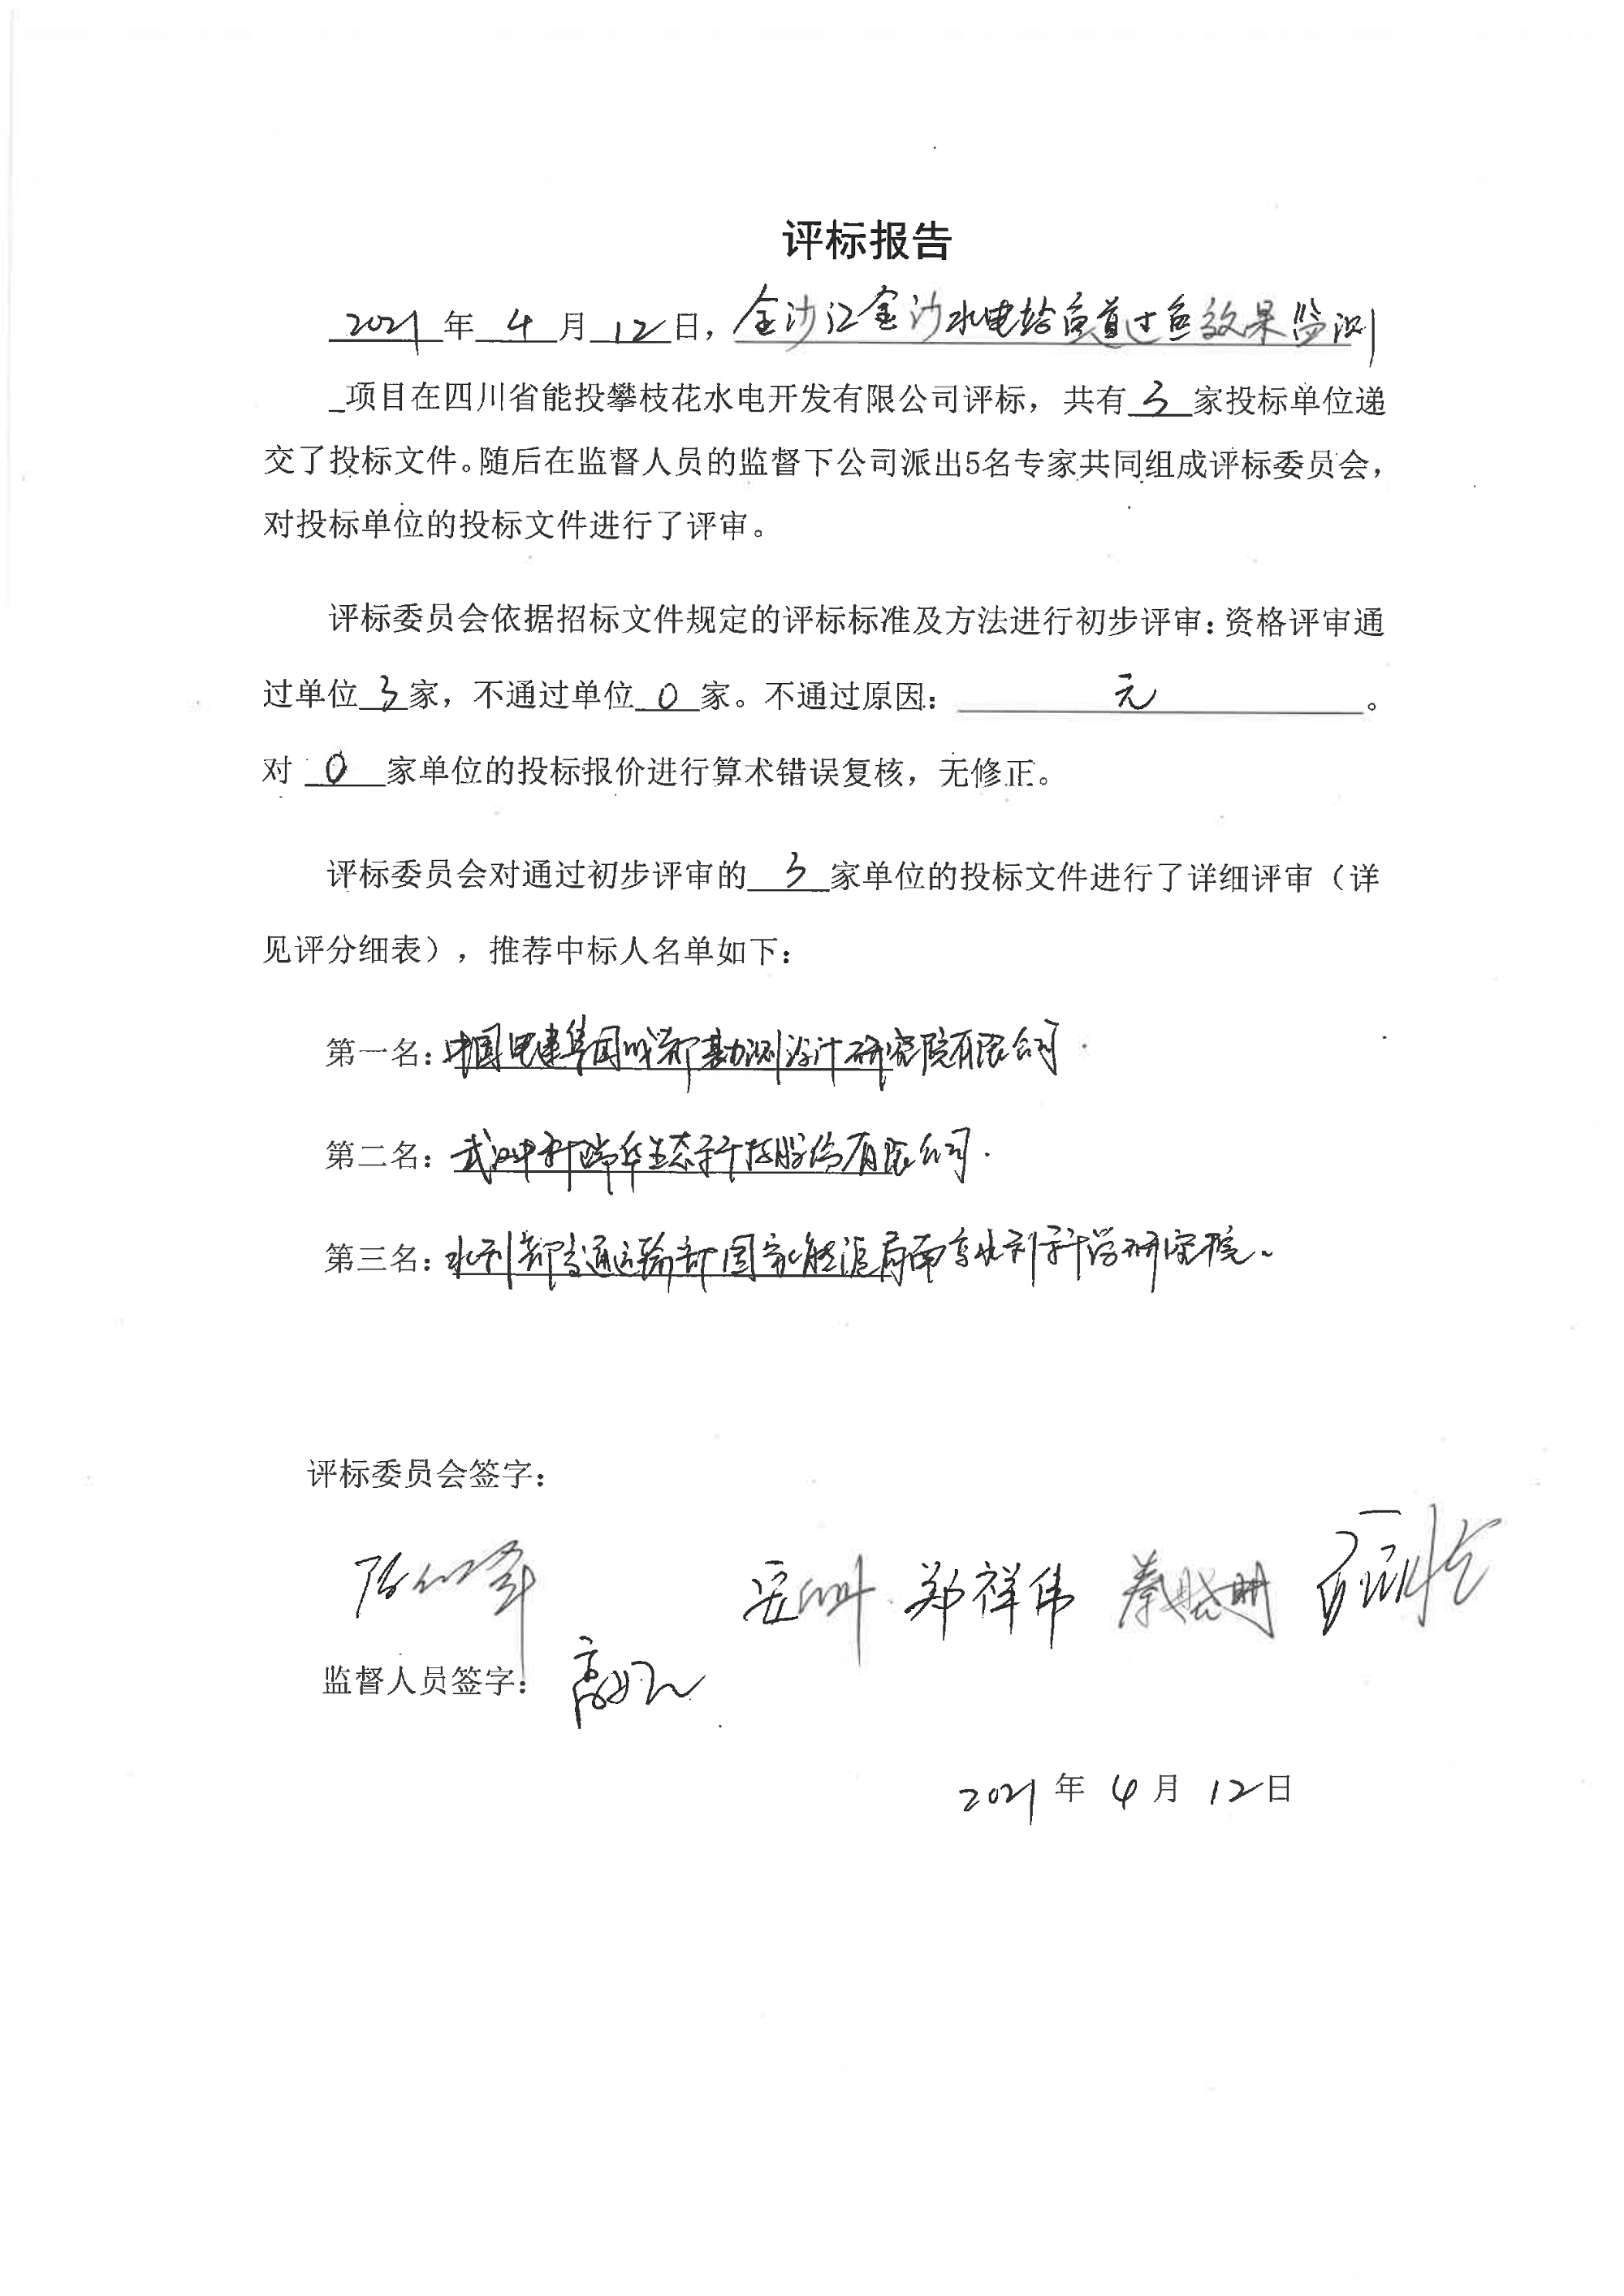 评标报告
2021年 4 月 12日，金沙江金沙水电站鱼道过鱼效果监测
_项目在四川省能投攀枝花水电开发有限公司评标，共有 3 家投标单位递
交了投标文件。随后在监督人员的监督下公司派出5名专家共同组成评标委员会，
对投标单位的投标文件进行了评审。
评标委员会依据招标文件规定的评标标准及方法进行初步评审：资格评审通
过单位 3 家，不通过单位 0 家。不通过原因： 无 。
对 0 家单位的投标报价进行算术错误复核，无修正。
评标委员会对通过初步评审的 3 家单位的投标文件进行了详细评审（详
见评分细表），推荐中标人名单如下：
第一名：中国电建集团成都勘测设计研究院有限公司
第二名：武汉中科瑞华生态科技股份有限公司.
第三名：水利部交通运输部国家能源局南京水利科学研究院。
评标委员会签字：
郑祥伟 秦晓明
监督人员签字：
2021 年 4 月 12日